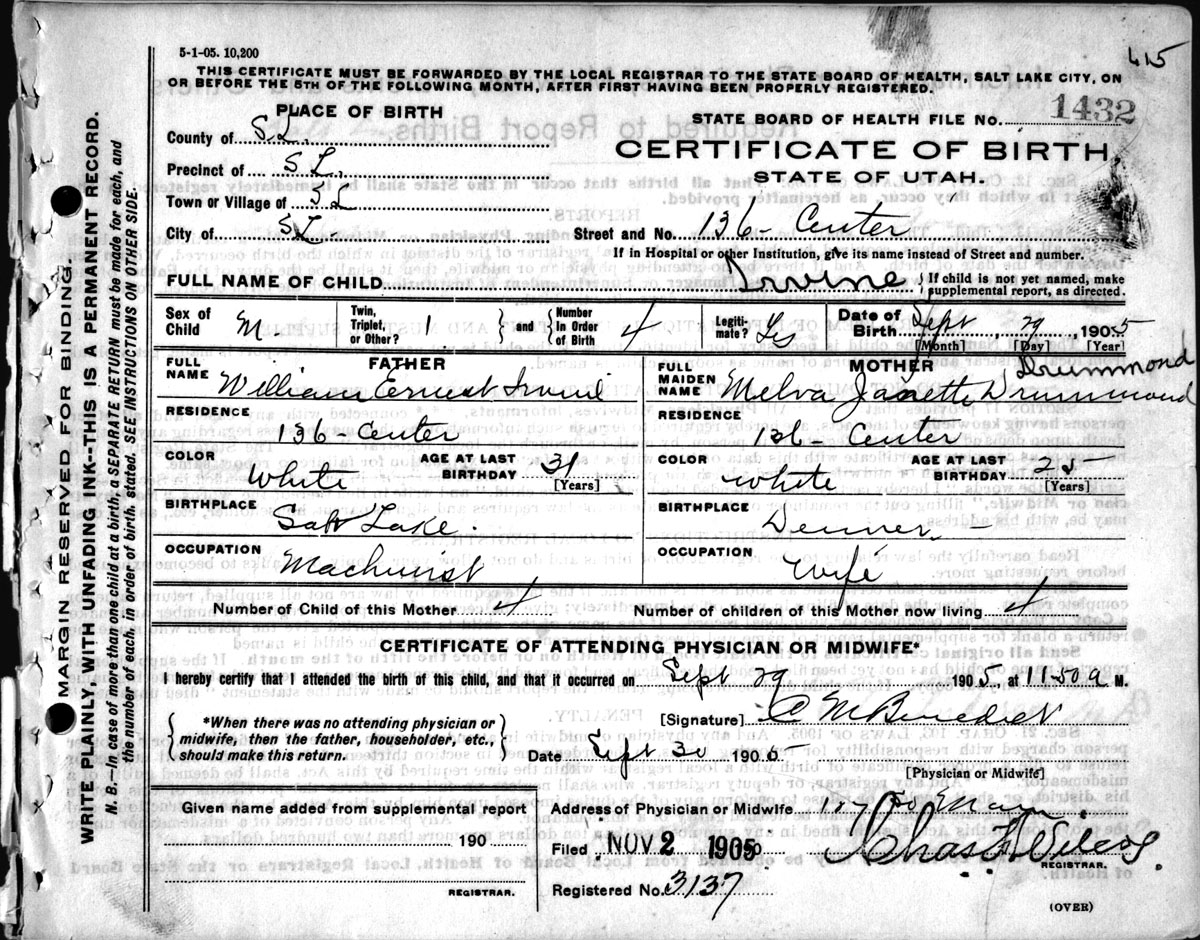 415
5-1-05. 10,200
THIS CERTIFICATE MUST BE FORWARDED BY THE LOCAL REGISTRAR TO THE STATE BOARD OF HEALTH, SALT LAKE CITY, ON
OR BEFORE THE 5TH OF THE FOLLOWING MONTH, AFTER FIRST HAVING BEEN PROPERLY REGISTERED.
PLACE OF BIRTH
STATE BOARD OF HEALTH FILE NO. 1432
County of S.L.
CERTIFICATE OF BIRTH
Precinct of S L.
STATE OF UTAH.
Town or Village of S L
City of S L
Street and No. 136 - Center
If in Hospital or other Institution, give its name instead of Street and number.
FULL NAME OF CHILD Irvine
If child is not yet named, make
supplemental report, as directed.
Sex of Child M.
Twin, Triplet, or Other? 1
and
Number in Order of Birth 4
Legitimate? Yes
Date of Birth Sept 29, 1905
[Month] [Day] [Year]
FATHER
FULL NAME William Ernest Irvine
RESIDENCE
136 - Center
COLOR White
AGE AT LAST BIRTHDAY 31
[Years]
BIRTHPLACE
Salt Lake.
OCCUPATION
Machinist
MOTHER
Drummond
FULL MAIDEN NAME Melva Janette Drummond
RESIDENCE
136 - Center
COLOR white
AGE AT LAST BIRTHDAY
[Years]
BIRTHPLACE
Denver
OCCUPATION
Wife
Number of Child of this Mother 4
Number of children of this Mother now living 4
CERTIFICATE OF ATTENDING PHYSICIAN OR MIDWIFE*
I hereby certify that I attended the birth of this child, and that it occurred on Sept 29 1905, at 11-50 a M.
*When there was no attending physician or
midwife, then the father, householder, etc.,
should make this return.
[Signature] C M Benedict
Date Sept 30 1905
[Physician or Midwife]
Given name added from supplemental report
190
REGISTRAR.
Address of Physician or Midwife
Filed NOV 2 1905
REGISTRAR.
Registered No. 3137
(OVER)
MARGIN RESERVED FOR BINDING
WRITE PLAINLY, WITH UNFADING INK--THIS IS A PERMANENT RECORD.
N. B.—In case of more than one child at a birth, a SEPARATE RETURN must be made for each, and
the number of each, in order of birth, stated. SEE INSTRUCTIONS ON OTHER SIDE.